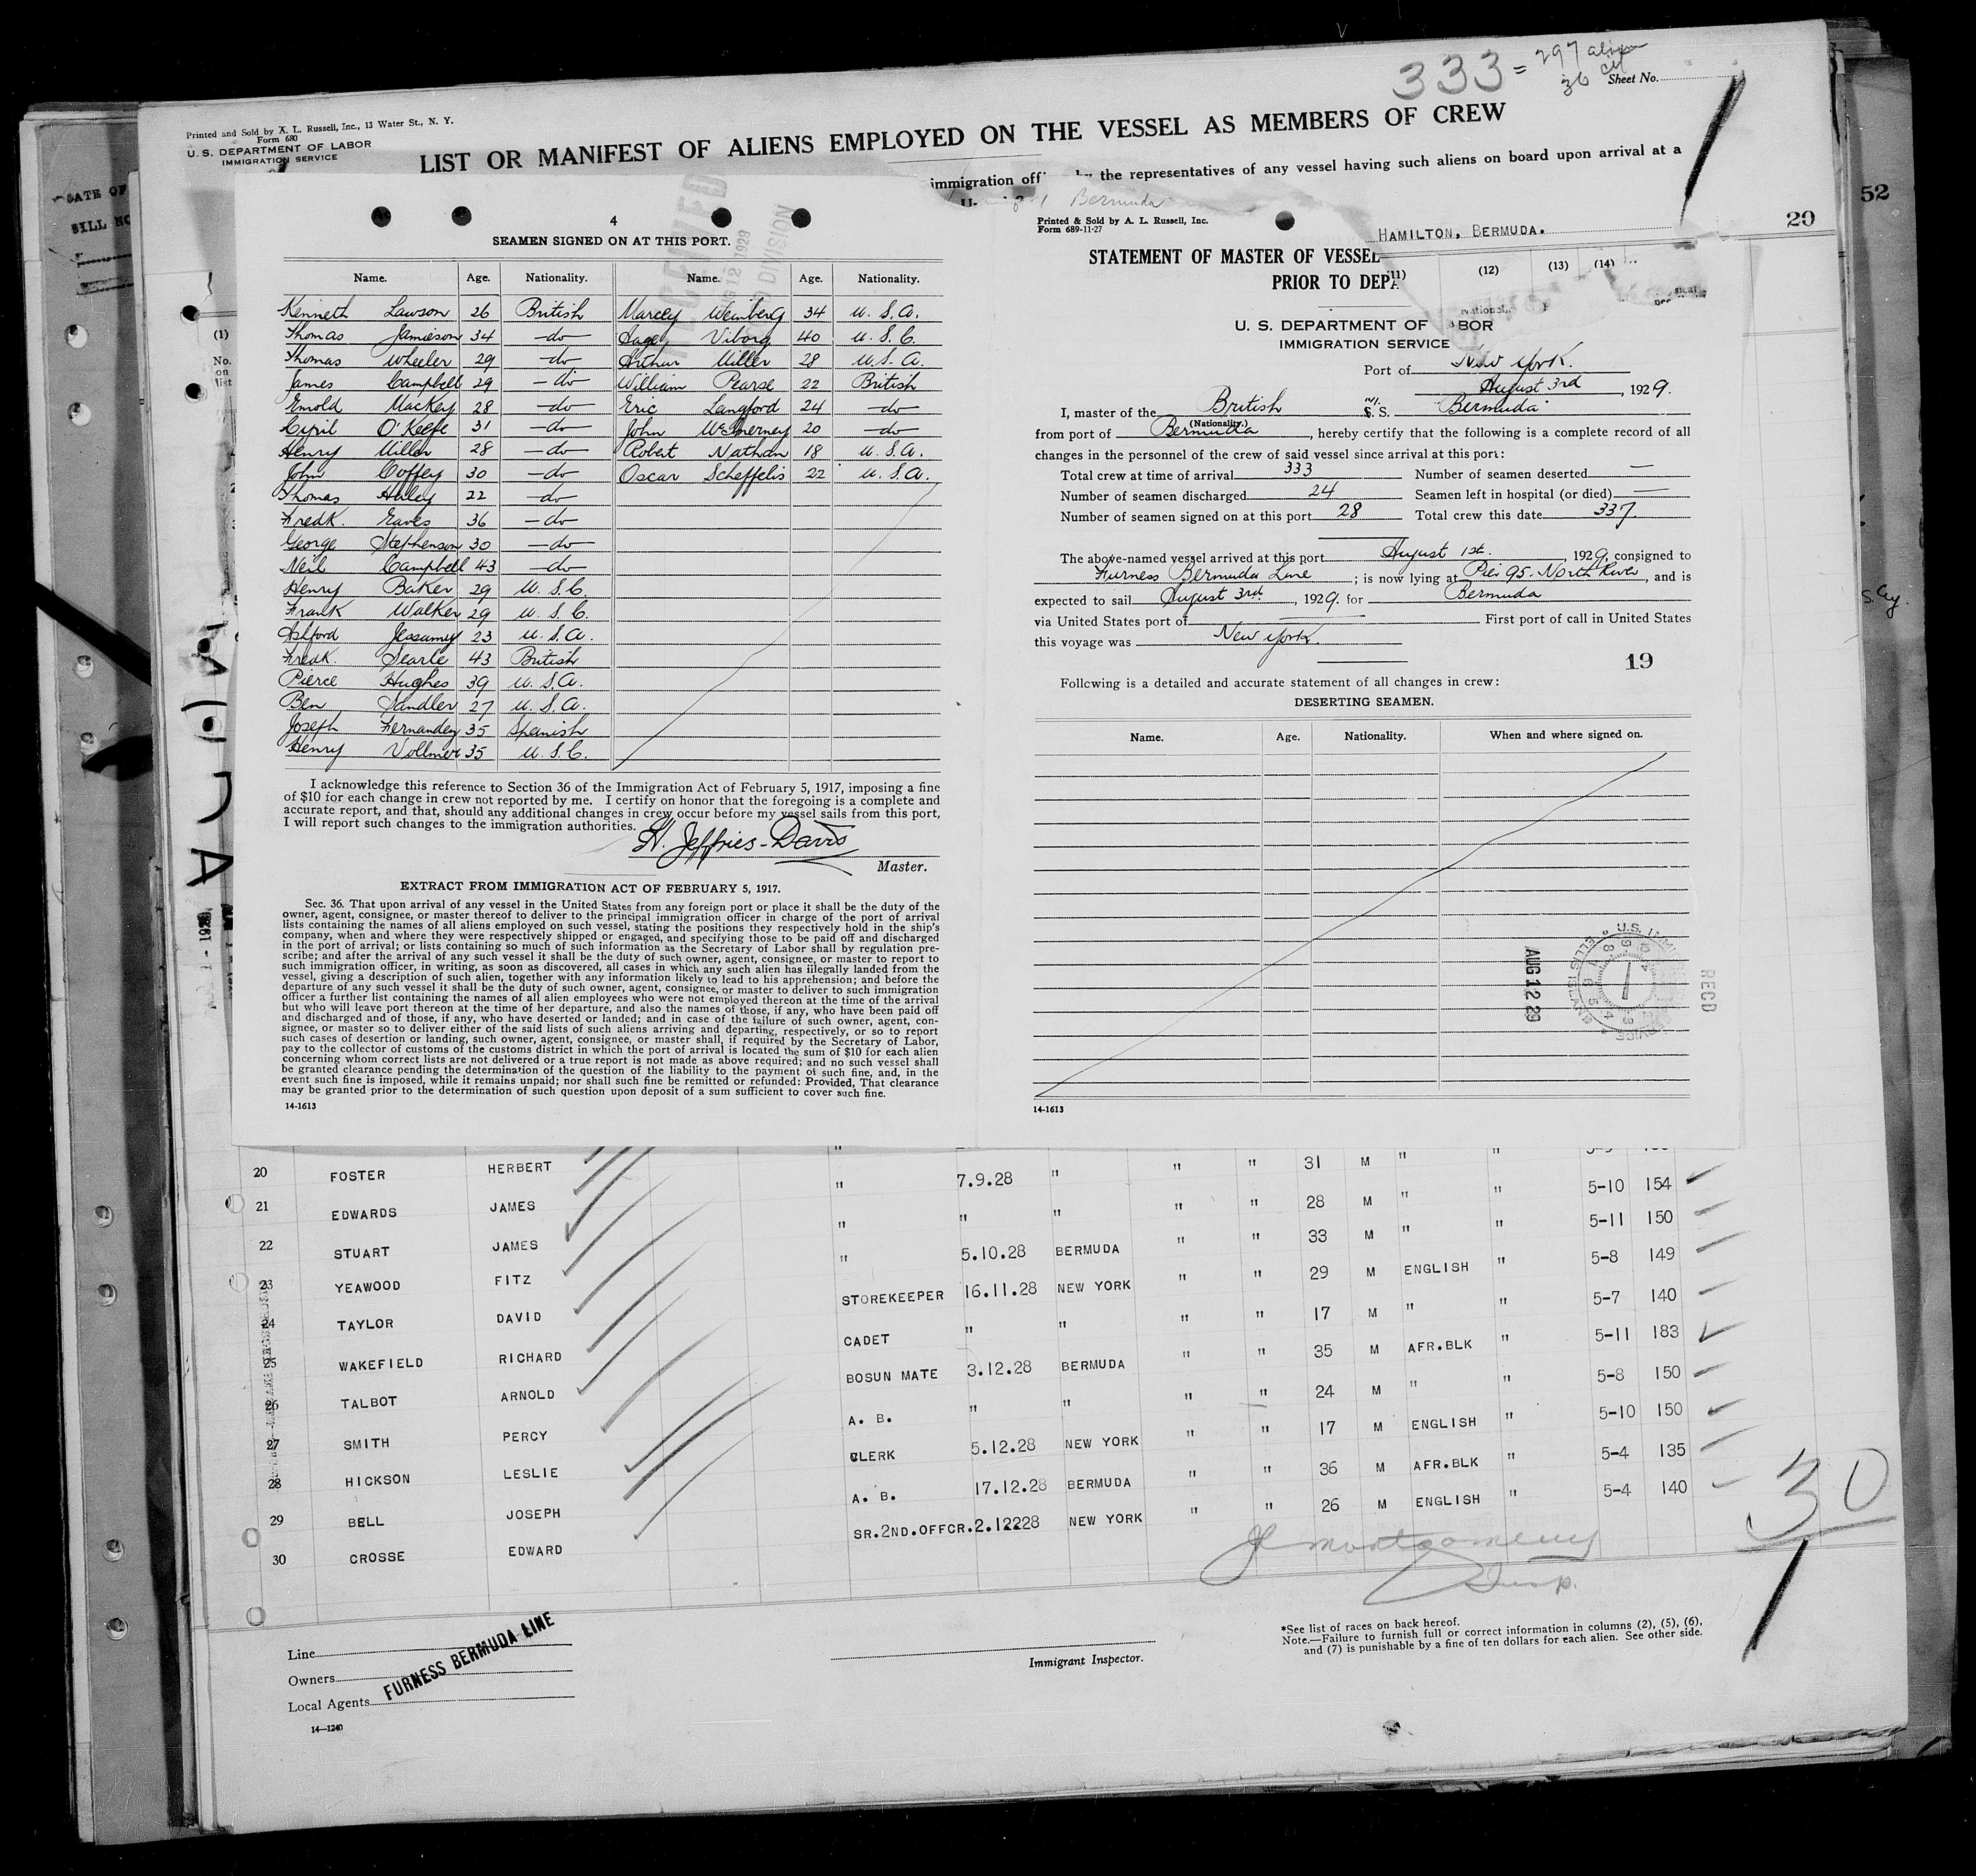 333 = 297 alien
36 cit
Sheet No.
Printed and Sold by A. L. Russell, Inc., 13 Water St., N. Y.
Form 680
U. S. DEPARTMENT OF LABOR
IMMIGRATION SERVICE
LIST OR MANIFEST OF ALIENS EMPLOYED ON THE VESSEL AS MEMBERS OF CREW
the representatives of any vessel having such aliens on board upon arrival at a
Bermuda
HAMILTON, BERMUDA.
20
52
(11) (12) (13) (14)
4
SEAMEN SIGNED ON AT THIS PORT.
Name. Age. Nationality. Name. Age. Nationality.
Kenneth Lawson 26 British Marcey Weinberg 34 U. S. A.
Thomas Jamieson 34 —do— Aage Viborg 40 U. S. C.
Thomas Wheeler 29 —do— Arthur Miller 28 U. S. A.
James Campbell 29 —do— William Pearse 22 British
Ernold Mackey 28 —do— Eric Langford 24 —do—
Cyril O'Keefe 31 —do— John McInerney 20 —do—
Henry Miller 28 —do— Robert Nathan 18 U. S. A.
John Coffey 30 —do— Oscar Scheffelis 22 U. S. A.
Thomas Haley 22 —do—
Fredk. Eaves 36 —do—
George Stephenson 30 —do—
Neil Campbell 43 —do—
Henry Baker 29 U. S. C.
Frank Walker 29 U. S. C.
Ashford Jessamy 23 U. S. A.
Fredk. Searle 43 British
Pierce Hughes 39 U. S. A.
Ben Sandler 27 U. S. A.
Joseph Fernandez 35 Spanish
Henry Vollmer 35 U. S. C.
I acknowledge this reference to Section 36 of the Immigration Act of February 5, 1917, imposing a fine
of $10 for each change in crew not reported by me. I certify on honor that the foregoing is a complete and
accurate report, and that, should any additional changes in crew occur before my vessel sails from this port,
I will report such changes to the immigration authorities.
H. Jeffries-Davis
Master.
EXTRACT FROM IMMIGRATION ACT OF FEBRUARY 5, 1917.
Sec. 36. That upon arrival of any vessel in the United States from any foreign port or place it shall be the duty of the
owner, agent, consignee, or master thereof to deliver to the principal immigration officer in charge of the port of arrival
lists containing the names of all aliens employed on such vessel, stating the positions they respectively hold in the ship's
company, when and where they were respectively shipped or engaged, and specifying those to be paid off and discharged
in the port of arrival; or lists containing so much of such information as the Secretary of Labor shall by regulation pre-
scribe; and after the arrival of any such vessel it shall be the duty of such owner, agent, consignee, or master to report to
such immigration officer, in writing, as soon as discovered, all cases in which any such alien has illegally landed from the
vessel, giving a description of such alien, together with any information likely to lead to his apprehension; and before the
departure of any such vessel it shall be the duty of such owner, agent, consignee, or master to deliver to such immigration
officer a further list containing the names of all alien employees who were not employed thereon at the time of the arrival
but who will leave port thereon at the time of her departure, and also the names of those, if any, who have been paid off
and discharged and of those, if any, who have deserted or landed; and in case of the failure of such owner, agent, con-
signee, or master so to deliver either of the said lists of such aliens arriving and departing, respectively, or so to report
such cases of desertion or landing, such owner, agent, consignee, or master shall, if required by the Secretary of Labor,
pay to the collector of customs of the customs district in which the port of arrival is located the sum of $10 for each alien
concerning whom correct lists are not delivered or a true report is not made as above required; and no such vessel shall
be granted clearance pending the determination of the question of the liability to the payment of such fine, and, in the
event such fine is imposed, while it remains unpaid; nor shall such fine be remitted or refunded: Provided, That clearance
may be granted prior to the determination of such question upon deposit of a sum sufficient to cover such fine.
14-1613
Printed & Sold by A. L. Russell, Inc.
Form 689-11-27
STATEMENT OF MASTER OF VESSEL
PRIOR TO DEPA
U. S. DEPARTMENT OF LABOR
IMMIGRATION SERVICE
Port of New York.
August 3rd, 1929.
I, master of the British M. S. "Bermuda"
(Nationality.)
from port of Bermuda, hereby certify that the following is a complete record of all
changes in the personnel of the crew of said vessel since arrival at this port:
Total crew at time of arrival 333 Number of seamen deserted —
Number of seamen discharged 24 Seamen left in hospital (or died) —
Number of seamen signed on at this port 28 Total crew this date 337
The above-named vessel arrived at this port August 1st., 1929, consigned to
Furness Bermuda Line; is now lying at Pier 95. North River, and is
expected to sail August 3rd, 1929. for Bermuda
via United States port of First port of call in United States
this voyage was New York.
19
Following is a detailed and accurate statement of all changes in crew:
DESERTING SEAMEN.
Name. Age. Nationality. When and where signed on.
AUG 12 29
RECD
14-1613
20 FOSTER HERBERT " 7.9.28 " " " 31 M " " 5-10 154
21 EDWARDS JAMES " " " " " 28 M " " 5-11 150
22 STUART JAMES " 5.10.28 BERMUDA " " 33 M " " 5-8 149
23 YEAWOOD FITZ STOREKEEPER 16.11.28 NEW YORK " " 29 M ENGLISH " 5-7 140
24 TAYLOR DAVID CADET " " " " 17 M " " 5-11 183
25 WAKEFIELD RICHARD BOSUN MATE 3.12.28 BERMUDA " " 35 M AFR.BLK " 5-8 150
26 TALBOT ARNOLD A. B. " " " " 24 M " " 5-10 150
27 SMITH PERCY CLERK 5.12.28 NEW YORK " " 17 M ENGLISH " 5-4 135
28 HICKSON LESLIE A. B. 17.12.28 BERMUDA " " 36 M AFR.BLK " 5-4 140
29 BELL JOSEPH SR.2ND.OFFCR. 2.12228 NEW YORK " " 26 M ENGLISH "
30 CROSSE EDWARD
30
Montgomery
Insp.
Line
Owners
Local Agents
FURNESS BERMUDA LINE
Immigrant Inspector.
*See list of races on back hereof.
Note.—Failure to furnish full or correct information in columns (2), (5), (6),
and (7) is punishable by a fine of ten dollars for each alien. See other side.
14—1240